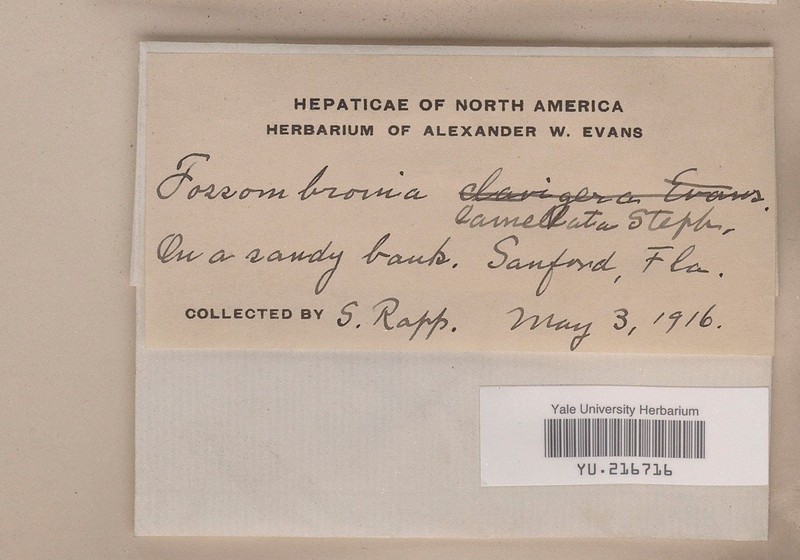 HEPATICAE OF NORTH AMERICA
HERBARIUM OF ALEXANDER W. EVANS
Fossombronia clavigera Evans.
lamellata Steph.
On a sandy bank. Sanford, Fla.
COLLECTED BY S. Rapp. May 3, 1916.
Yale University Herbarium
YU.216716